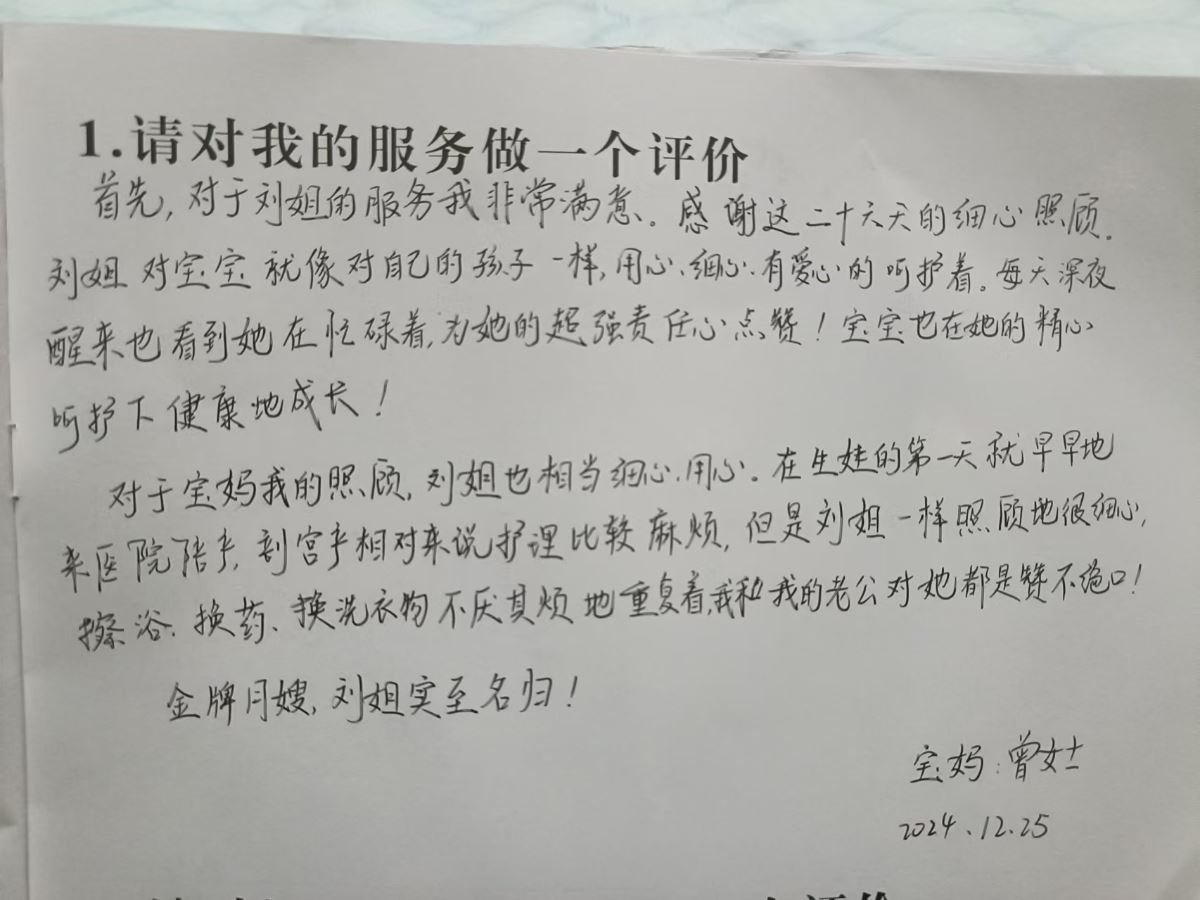 1.请对我的服务做一个评价
首先,对于刘姐的服务我非常满意。感谢这二十六天的细心照顾.
刘姐对宝宝就像对自己的孩子一样,用心、细心、有爱心的呵护着。每天深夜
醒来也看到她在忙碌着,为她的超强责任心点赞!宝宝也在她的精心
呵护下健康地成长!
对于宝妈我的照顾,刘姐也相当细心、用心。在生娃的第一天就早早地
来医院陪产,剖宫产相对来说护理比较麻烦,但是刘姐一样照顾地很细心,
擦浴、换药、换洗衣物不厌其烦地重复着,我和我的老公对她都是赞不绝口!
金牌月嫂,刘姐实至名归!
宝妈:曾女士
2024.12.25
评价